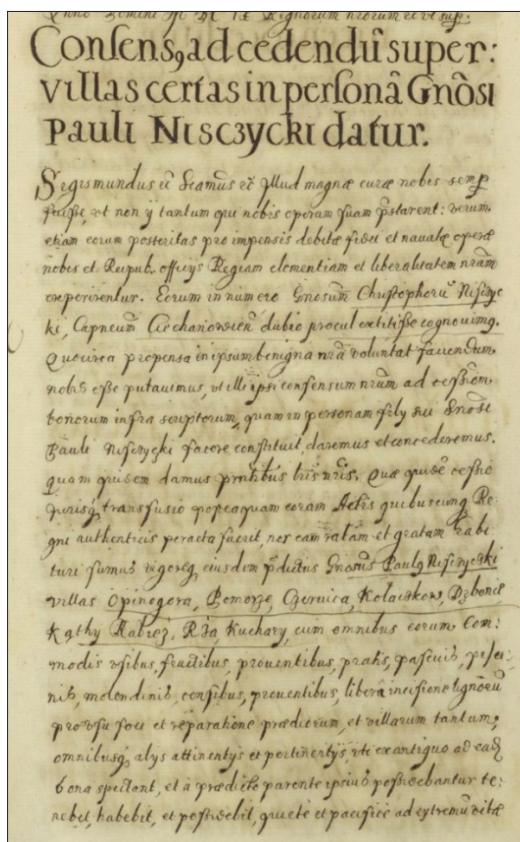 Anno Domini M DC IX Regnorum nrorum etc ut sup.
Consensꝯ ad cedendũ super:
villas certas in personã Gnõsi
Pauli Nisczycki datur.
Sigismundus etc Seamus etc Illud magnæ curæ nobis semp
fuisse, ut non ij tantum qui nobis operam suam pstarent: verum
etiam eorum posteritas pro impensis debitæ fidei et navatæ operæ
nobis et Reipub. officijs Regiam clementiam et liberalitatem nrãm
experirentur. Eorum in numero Gnosum Christophorũ Nisczyc
ki, Capneum Ciechanowien̄ dubio procul extitisse cognouimꝯ.
Quocirca propensa in ipsum benigna nrã voluntat fauendum
nobis esse putauimus, ut illi ipsi consensum nrum ad cessiõm
bonorum infra scriptorum, quam in personam filij sui Gnosi
Pauli Nisczycki facere constituit, daremus et concederemus.
quam quidem damus pñtibus lris nris. Quæ quidẽ cessio
iurisqꝫ transfusio postquam coram Actis quibuscunqꝫ Re-
gni authenticis peracta fuerit, nos eam ratam et gratam habi
turi sumus vigoreqꝫ eiusdem pdictus Gnosus Paulꝯ Nisczycki
villas Opinogora, Pomorze, Czernice, Kołaczkow, Dzbonie
Kąthy Rabiez, Rża, Kuchary, cum omnibus eorum Com:
modis usibus, fructibus, prouentibus, pratis, pascuis, pisci-
nis, molendinis, censibus, prouentibus, libera incisione lignorũ
pro usu foci et reparatione prædiorum, et villarum tantum,
omnibusqꝫ alijs attinentijs et pertinentijs, uti ex antiquo ad eadꝫ
bona spectant, et à prædicto parente ipsius possidebantur te-
nebit, habebit, et possidebit, quiete et pacifice ad extremũ vitæ